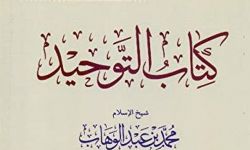 كِتَابُ التَّوْحِيد
شيخ الإسلام
مُحَمَّد بْن عَبْد الوَهَاب